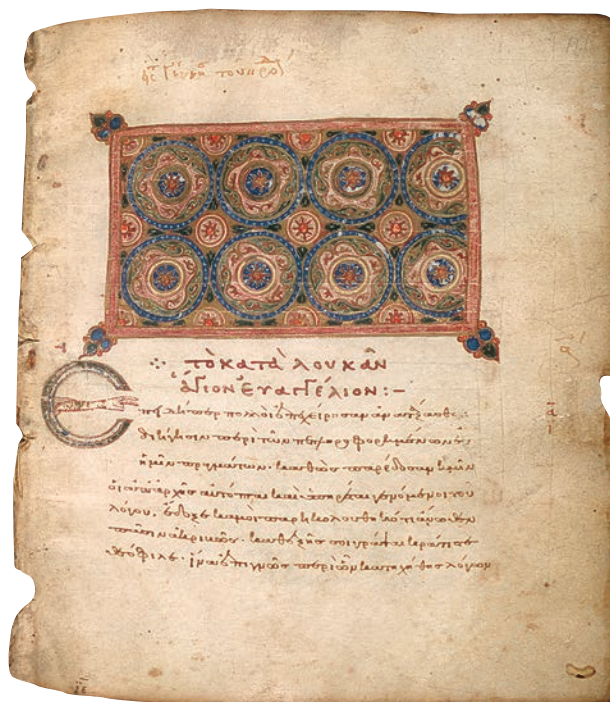 τὸ κατὰ λουκᾶν
ἅγιον εὐαγγέλιον:–
Ἐπειδήπερ πολλοὶ ἐπεχείρησαν ἀνατάξασθαι
διήγησιν περὶ τῶν πεπληροφορημένων ἐν
ἡμῖν πραγμάτων· καθὼς παρέδοσαν ἡμῖν
οἱ ἀπαρχῆς αὐτόπται καὶ ὑπηρέται γενόμενοι τοῦ
λόγου. ἔδοξε κἀμοὶ παρηκολουθηκότι ἄνωθεν
πᾶσιν ἀκριβῶς· καθεξῆς σοι γράψαι κράτιστε
θεόφιλε· ἵνα ἐπιγνῶς περὶ ὧν κατηχήθης λόγων